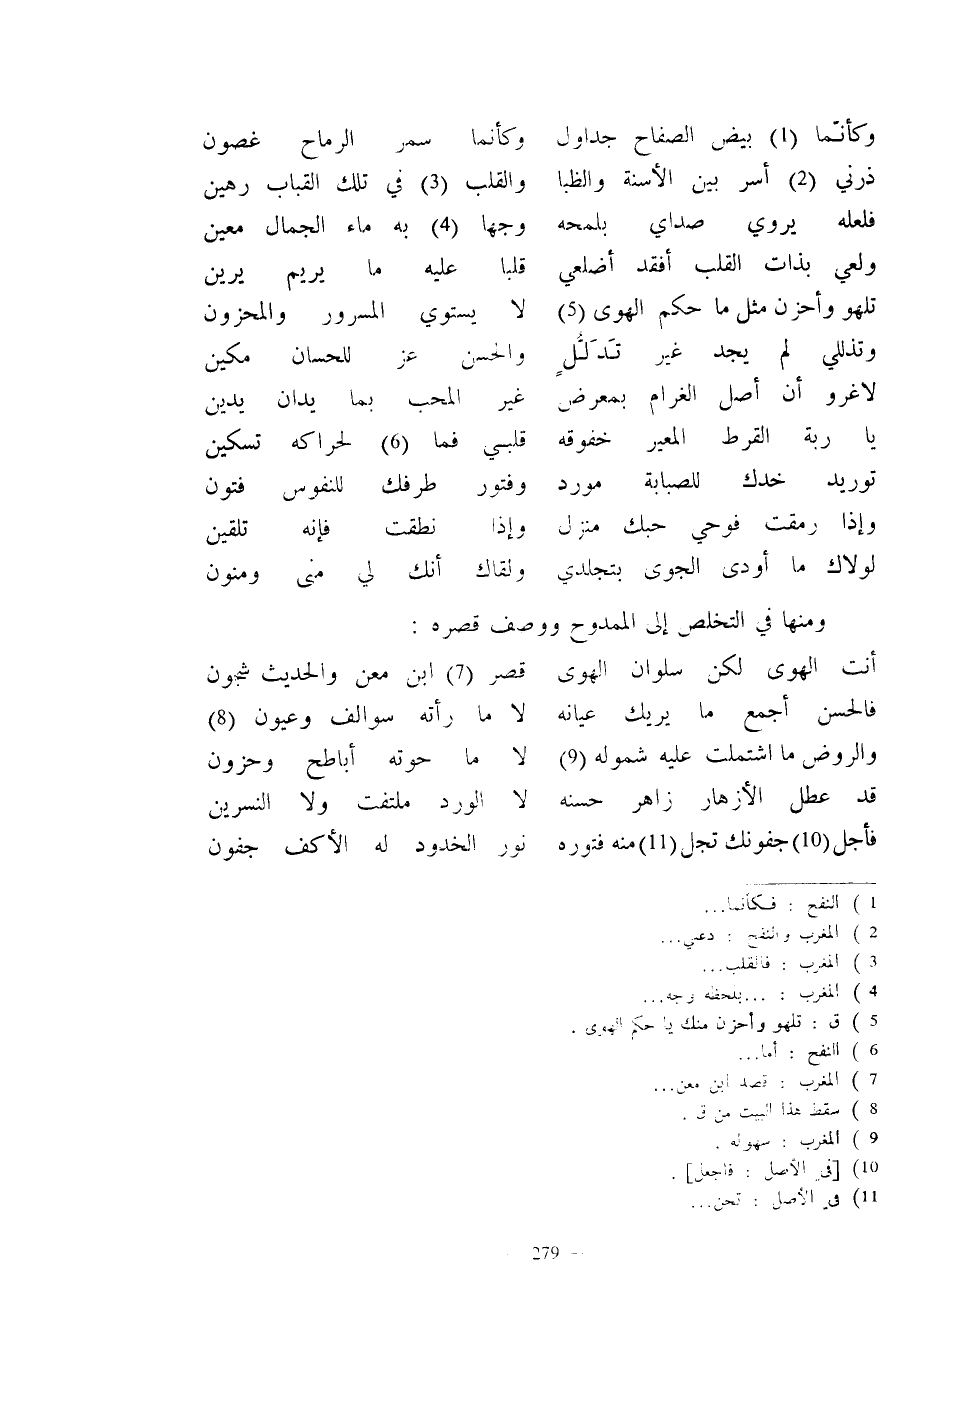 وكأنّما (1) بيض الصفاح جداول وكأنما سمر الرماح غصون
ذرني (2) أسر بين الأسنة والظبا والقلب (3) في تلك القباب رهين
فلعله يروي صداي بلمحه وجها (4) به ماء الجمال معين
ولعي بذات القلب أفقد أضلعي قلبا عليه ما يريم يرين
تلهو وأحزن مثل ما حكم الهوى (5) لا يستوي المسرور والمحزون
وتذللي لم يجد غير تَدَلُّلٍ والحسن عز للحسان مكين
لاغرو أن أصل الغرام بمعرض غير المحب بما يدان يدين
يا ربة القرط المعير خفوقه قلبي فما (6) لحراكه تسكين
توريد خدك للصبابة مورد وفتور طرفك للنفوس فتون
وإذا رمقت فوحي حبك منزل وإذا نطقت فإنه تلقين
لولاك ما أودى الجوى بتجلدي ولقاك أنك لي منى ومنون
ومنها في التخلص إلى الممدوح ووصف قصره :
أنت الهوى لكن سلوان الهوى قصر (7) ابن معن والحديث شجون
فالحسن أجمع ما يريك عيانه لا ما رأته سوالف وعيون (8)
والروض ما اشتملت عليه شموله (9) لا ما حوته أباطح وحزون
قد عطل الأزهار زاهر حسنه لا الورد ملتفت ولا النسرين
فأجل (10) جفونك تجل (11) منه فتوره نور الخدود له الأكف جفون
1 ) النفح : فكأنما...
2 ) المغرب والنفح : دعني...
3 ) المغرب : فالقلب...
4 ) المغرب : ...بلحظه وجه...
5 ) ق : تلهو وأحزن منك يا حكم الهوى .
6 ) النفح : أما...
7 ) المغرب : قصد ابن معن...
8 ) سقط هذا البيت من ق .
9 ) المغرب : سهوله .
10) [في الأصل : فاجعل] .
11) في الأصل : تحن...
279 -